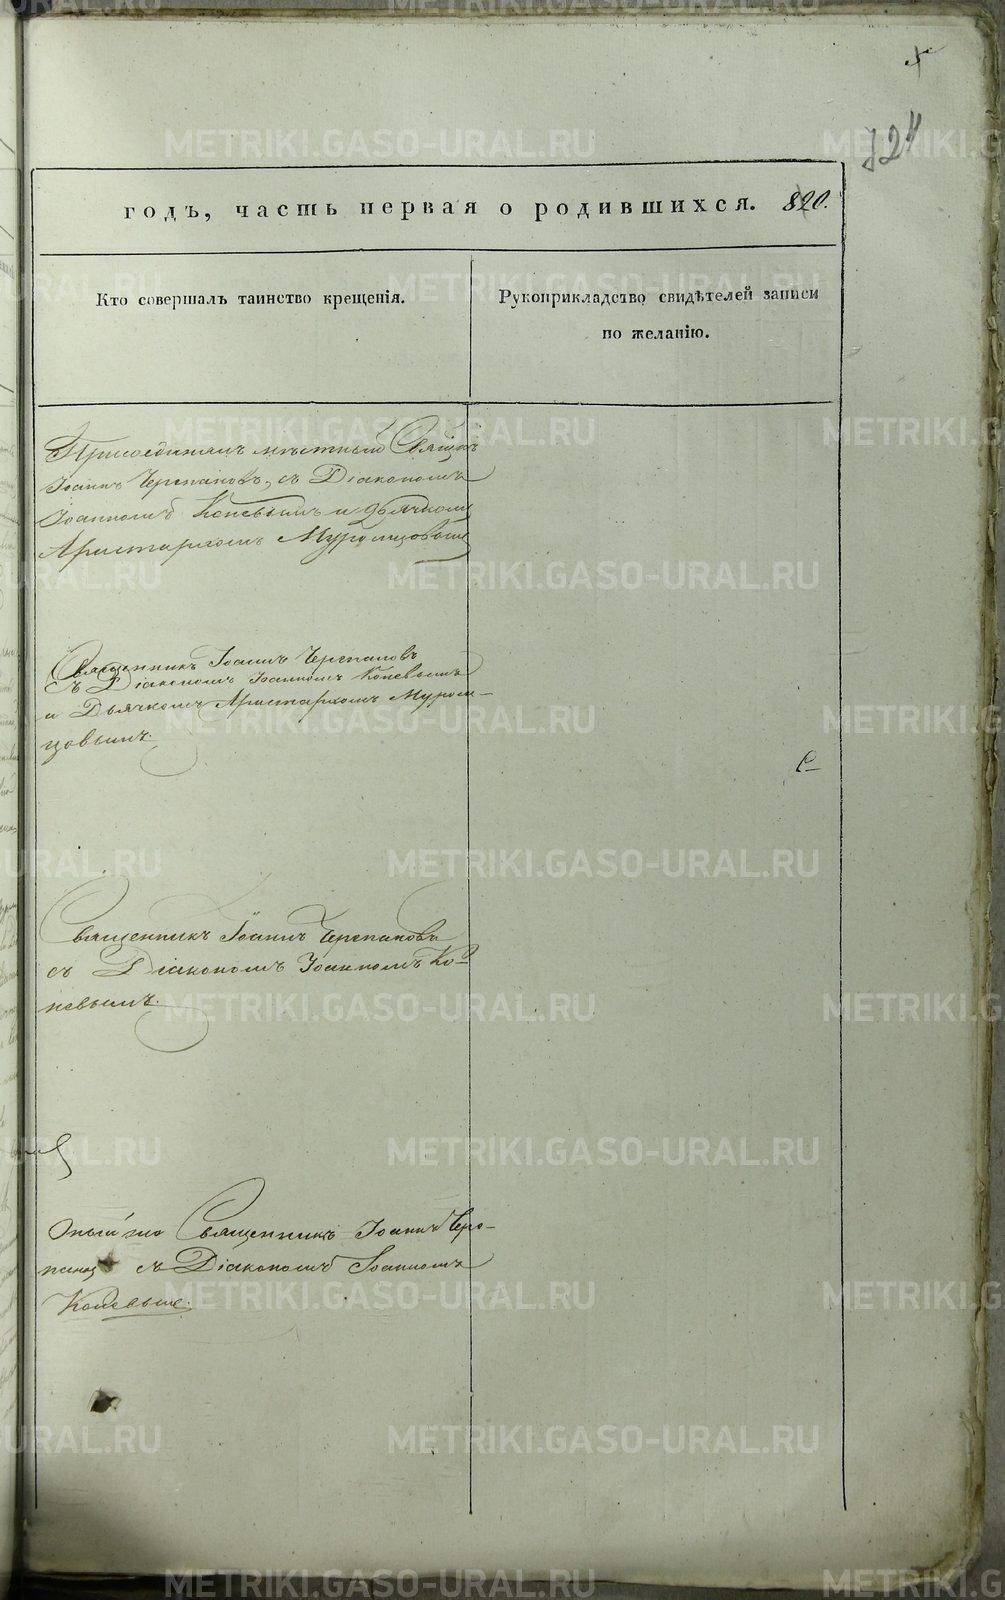 годъ, часть первая о родившихся. 820.
Кто совершалъ таинство крещенія.
Рукоприкладство свидѣтелей записи
по желанію.
Присоединялъ мѣстный Священ
Іоаннъ Черепановъ, съ Діакономъ
Іоанномъ Коневымъ и дьячкомъ
Аристархомъ Муромцовым
Священникъ Іоаннъ Черепановъ
съ Діакономъ Іоанномъ Коневымъ
и Дьячкомъ Аристархомъ Муром-
цовымъ.
Священникъ Іоаннъ Черепановъ
съ Діакономъ Іоанномъ Ко-
невымъ.
Священникъ Іоаннъ Чере-
съ Діакономъ Іоанномъ
Коневым.
METRIKI.GASO-URAL.RU